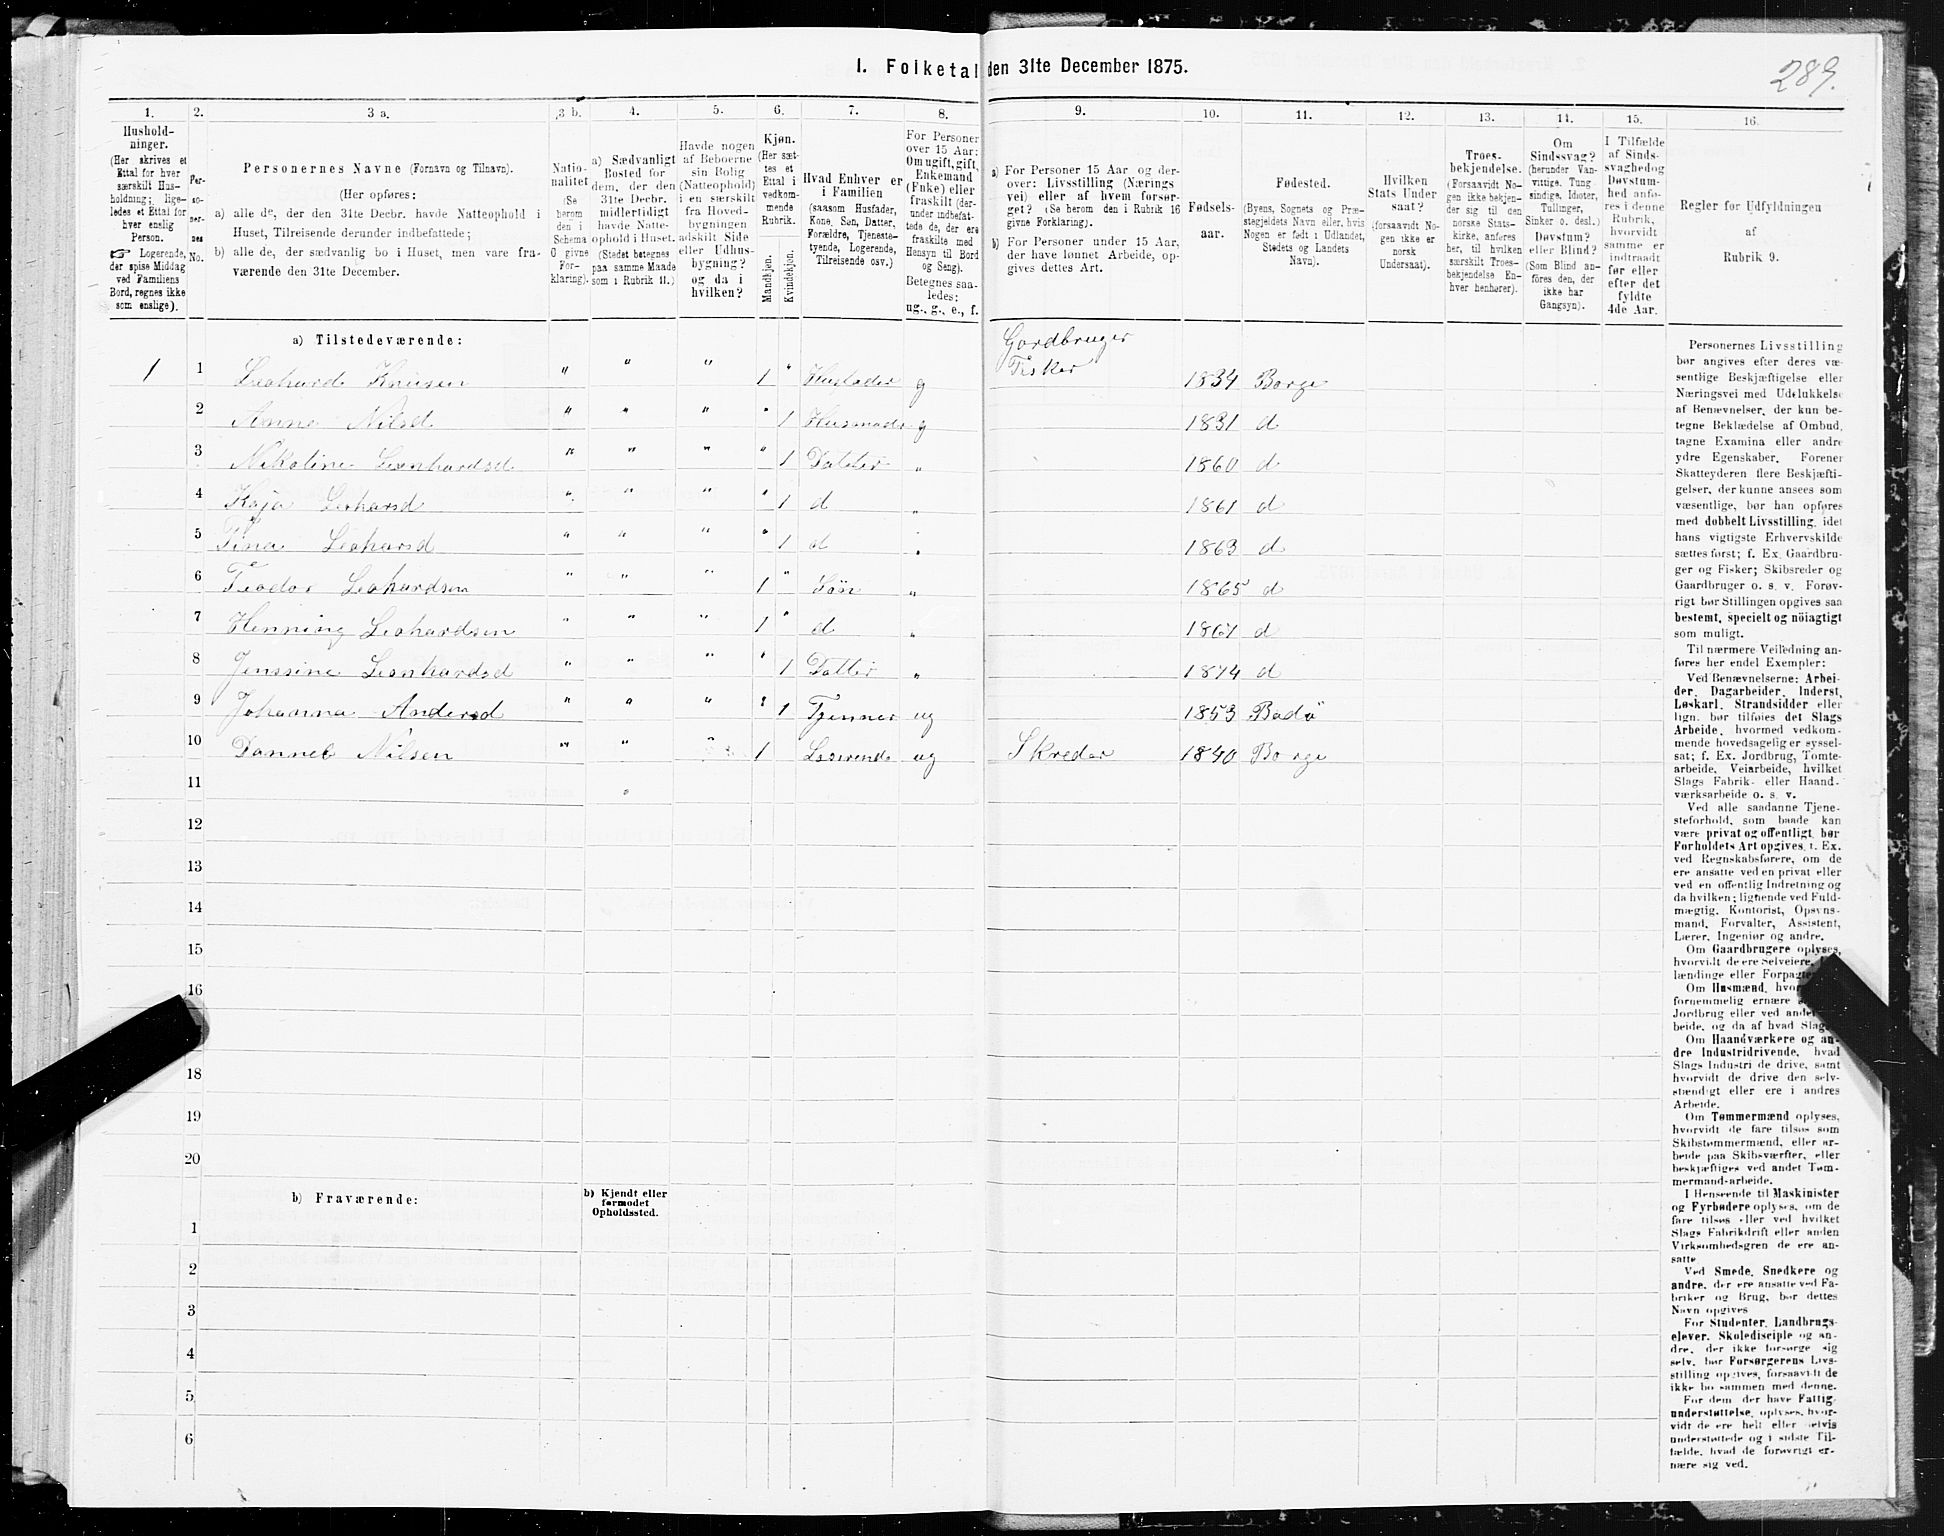 1. Folketal den 31te December 1875.
289.
1. 2. 3 a. 3 b. 4. 5. 6. 7. 8. 9. 10. 11. 12. 13. 14. 15. 16.
Hushold-
ninger.
(Her skrives et
Ettal for hver
særskilt Hus-
holdning; lige-
ledes et Ettal for
hver enslig
Person.
☞ Logerende,
der spise Middag
ved Familiens
Bord, regnes ikke
som enslige).
Per-
so-
ner-
nes
No.
Personernes Navne (Fornavn og Tilnavn).
(Her opføres:
a) alle de, der den 31te Decbr. havde Natteophold i
Huset, Tilreisende derunder indbefattede;
b) alle de, der sædvanlig bo i Huset, men vare fra-
værende den 31te December.
Natio-
nalitet
(Se
herom
den i
Schema
O givne
For-
klaring).
a) Sædvanligt
Bosted for
dem, der den
31te Decbr.
midlertidigt
havde Natte-
ophold i Huset.
(Stedet betegnes
paa samme Maade
som i Rubrik 11.)
Havde nogen
af Beboerne
sin Bolig
(Natteophold)
i en særskilt
fra Hoved-
bygningen
adskilt Side
eller Udhus-
bygning?
og da i
hvilken?
Kjøn.
(Her sæt-
tes et
Ettal i
vedkom-
mende
Rubrik.
Mandkjøn.
Kvindekjøn.
Hvad Enhver er
i Familien
(saasom Husfader,
Kone, Søn, Datter,
Forældre, Tjeneste-
tyende, Logerende,
Tilreisende osv.)
For Personer
over 15 Aar:
Om ugift, gift,
Enkemand
(Enke) eller
fraskilt (der-
under indbefat-
tede de, der ere
fraskilte med
Hensyn til Bord
og Seng).
Betegnes saa-
ledes:
ug., g., e., f.
a) For Personer 15 Aar og der-
over: Livsstilling (Nærings
vei) eller af hvem forsør-
get? (Se herom den i Rubrik 16
givne Forklaring).
b) For Personer under 15 Aar,
der have lønnet Arbeide, op-
gives dettes Art.
Fødsels-
aar.
Fødested.
(Byens, Sognets og Præ-
stegjeldets Navn eller, hvis
Nogen er født i Udlandet,
Stedets og Landets
Navn).
Hvilken
Stats Under
saat?
(forsaavidt No-
gen ikke er
norsk
Undersaat).
Troes-
bekjendelse.
(Forsaavidt No-
gen ikke bekjen-
der sig til den
norske Stats-
kirke, anføres
her, til hvilken
særskilt Troes-
bekjendelse En-
hver henhører).
Om
Sindssvag?
(herunder Van-
vittige. Tung
sindige, Idioter,
Tullinger,
Sinker o. desl.)
Døvstum?
eller Blind?
(Som Blind an-
føres den, der
ikke har
Gangsyn).
I Tilfælde
af Sinds-
svaghed og
Døvstum-
hed anfø-
res i denne
Rubrik,
hvorvidt
samme er
indtraadt
før eller
efter det
fyldte
4de Aar.
Regler for Udfyldningen
af
Rubrik 9.
a) Tilstedeværende:
Gordbruger
1 1 Leohard Knusen " " " 1 " Husfader g Fisker 1834 Borge
2 Anne Nilsd " " " " 1 Husmoder g 1831 d
3 Nikoline Leonhardsd " " " " 1 Datter " 1860 d
4 Kaja Leoharsd " " " " 1 d " 1861 d
5 Tina Leoharsd " " " " 1 d " 1863 d
6 Teodor Leohardsen " " " 1 " Sön " 1865 d
7 Henning Leohardsen " " " 1 " d " 1867 d
8 Jenssine Leonhardsd " " " " 1 Datter " 1874 d
9 Johanna Andersd " " " " 1 Tjenner ug 1853 Bodö
10 Dannel Nilsen " " " 1 Loserende ug Skredar 1840 Borge
11 "
12
13
14
15
16
18
19
20
b) Fraværende:
b) Kjendt eller
formodet
Opholdssted.
1
2
3
4
5
6
Personernes Livsstilling
bør angives efter deres væ-
sentlige Beskjæftigelse eller
Næringsvei med Udelukkelse
af Benævnelser, der kun be-
tegne Beklædelse af Ombud,
tagne Examina eller andre
ydre Egenskaber. Forener
Skatteyderen flere Beskjæfti-
gelser, der kunne ansees som
væsentlige, bør han opføres
med dobbelt Livsstilling, idet
hans vigtigste Erhvervskilde
sættes først; f. Ex. Gaardbru-
ger og Fisker; Skibsreder og
Gaardbruger o. s. v. Forøv-
rigt bør Stillingen opgives saa
bestemt, specielt og nøiagtigt
som muligt.
Til nærmere Veiledning an-
føres her endel Exempler:
Ved Benævnelserne: Arbei-
der, Dagarbeider, Inderst,
Løskarl, Strandsidder eller
lign. bør tilføies det Slags
Arbeide, hvormed vedkom-
mende hovedsagelig er syssel-
sat; f. Ex. Jordbrug, Tomte-
arbeide, Veiarbeide, hvilket
Slags Fabrik- eller Haand-
værksarbeide o. s. v.
Ved alle saadanne Tjene-
steforhold, som baade kan
være privat og offentligt, bør
Forholdets Art opgives, t. Ex.
ved Regnskabsførere, om de
ere ansatte ved en privat eller
ved en offentlig Indretning og
da hvilken; lignende ved Fuld-
mægtig, Kontorist, Opsyns-
mand, Forvalter, Assistent,
Lærer, Ingeniør og andre.
Om Gaardbrugere oplyses,
hvorvidt de ere Selveiere,
lændinge eller
Om Husmænd,
fornemmelig ernære
Jordbrug eller ved
beide, og da af hvad
Om Haandværkere og an-
dre Industridrivende, hvad
Slags Industri de drive, samt
hvorvidt de drive den selv-
stændigt eller ere i andres
Arbeide.
Om Tømmermænd oplyses,
hvorvidt de fare tilsøs som
Skibstømmermænd, eller ar-
beide paa Skibsværfter, eller
beskjæftiges ved andet Tøm-
mermand-arbeide.
I Henseende til Maskinister
og Fyrbødere oplyses, om de
fare tilsøs eller ved hvilket
Slags Fabrikdrift eller anden
Virksomhedsgren de ere an-
satte
Ved Smede, Snedkere og
andre, der ere ansatte ved Fa-
briker og Brug, bør dettes
Navn opgives
For Studenter, Landbrugs-
elever, Skoledisciple og an-
dre, der ikke forsørge sig
selv, bør Forsørgerens Livs-
stilling opgives, forsaavidt de
ikke bo sammen med denne.
For dem, der have Fattig-
understøttelse, oplyses, hvor-
vidt de ere helt eller delvis
understøttede og i sidste Til-
fælde, hvad de forøvrigt er-
nære sig ved.